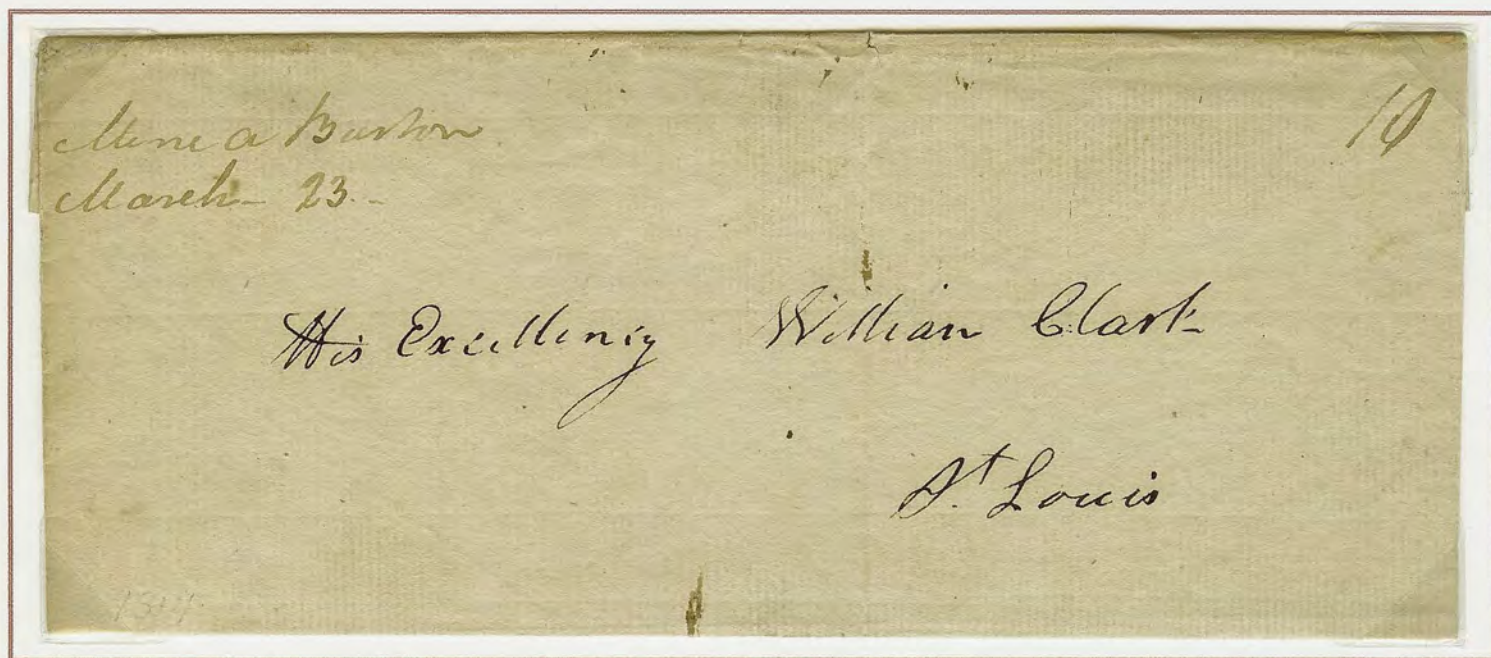 Mine a Burton
March 23.
10
His Excellency William Clark
St. Louis